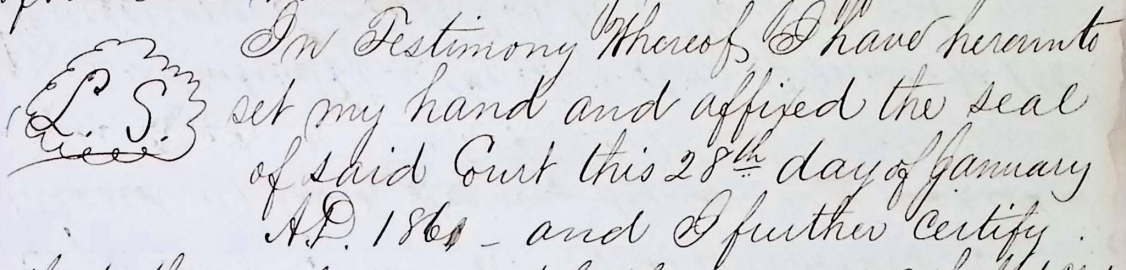 In Testimony Whereof, I have hereunto
L. S. set my hand and affixed the seal
of said Court this 28th day of January
A.D. 1861 - and I further certify